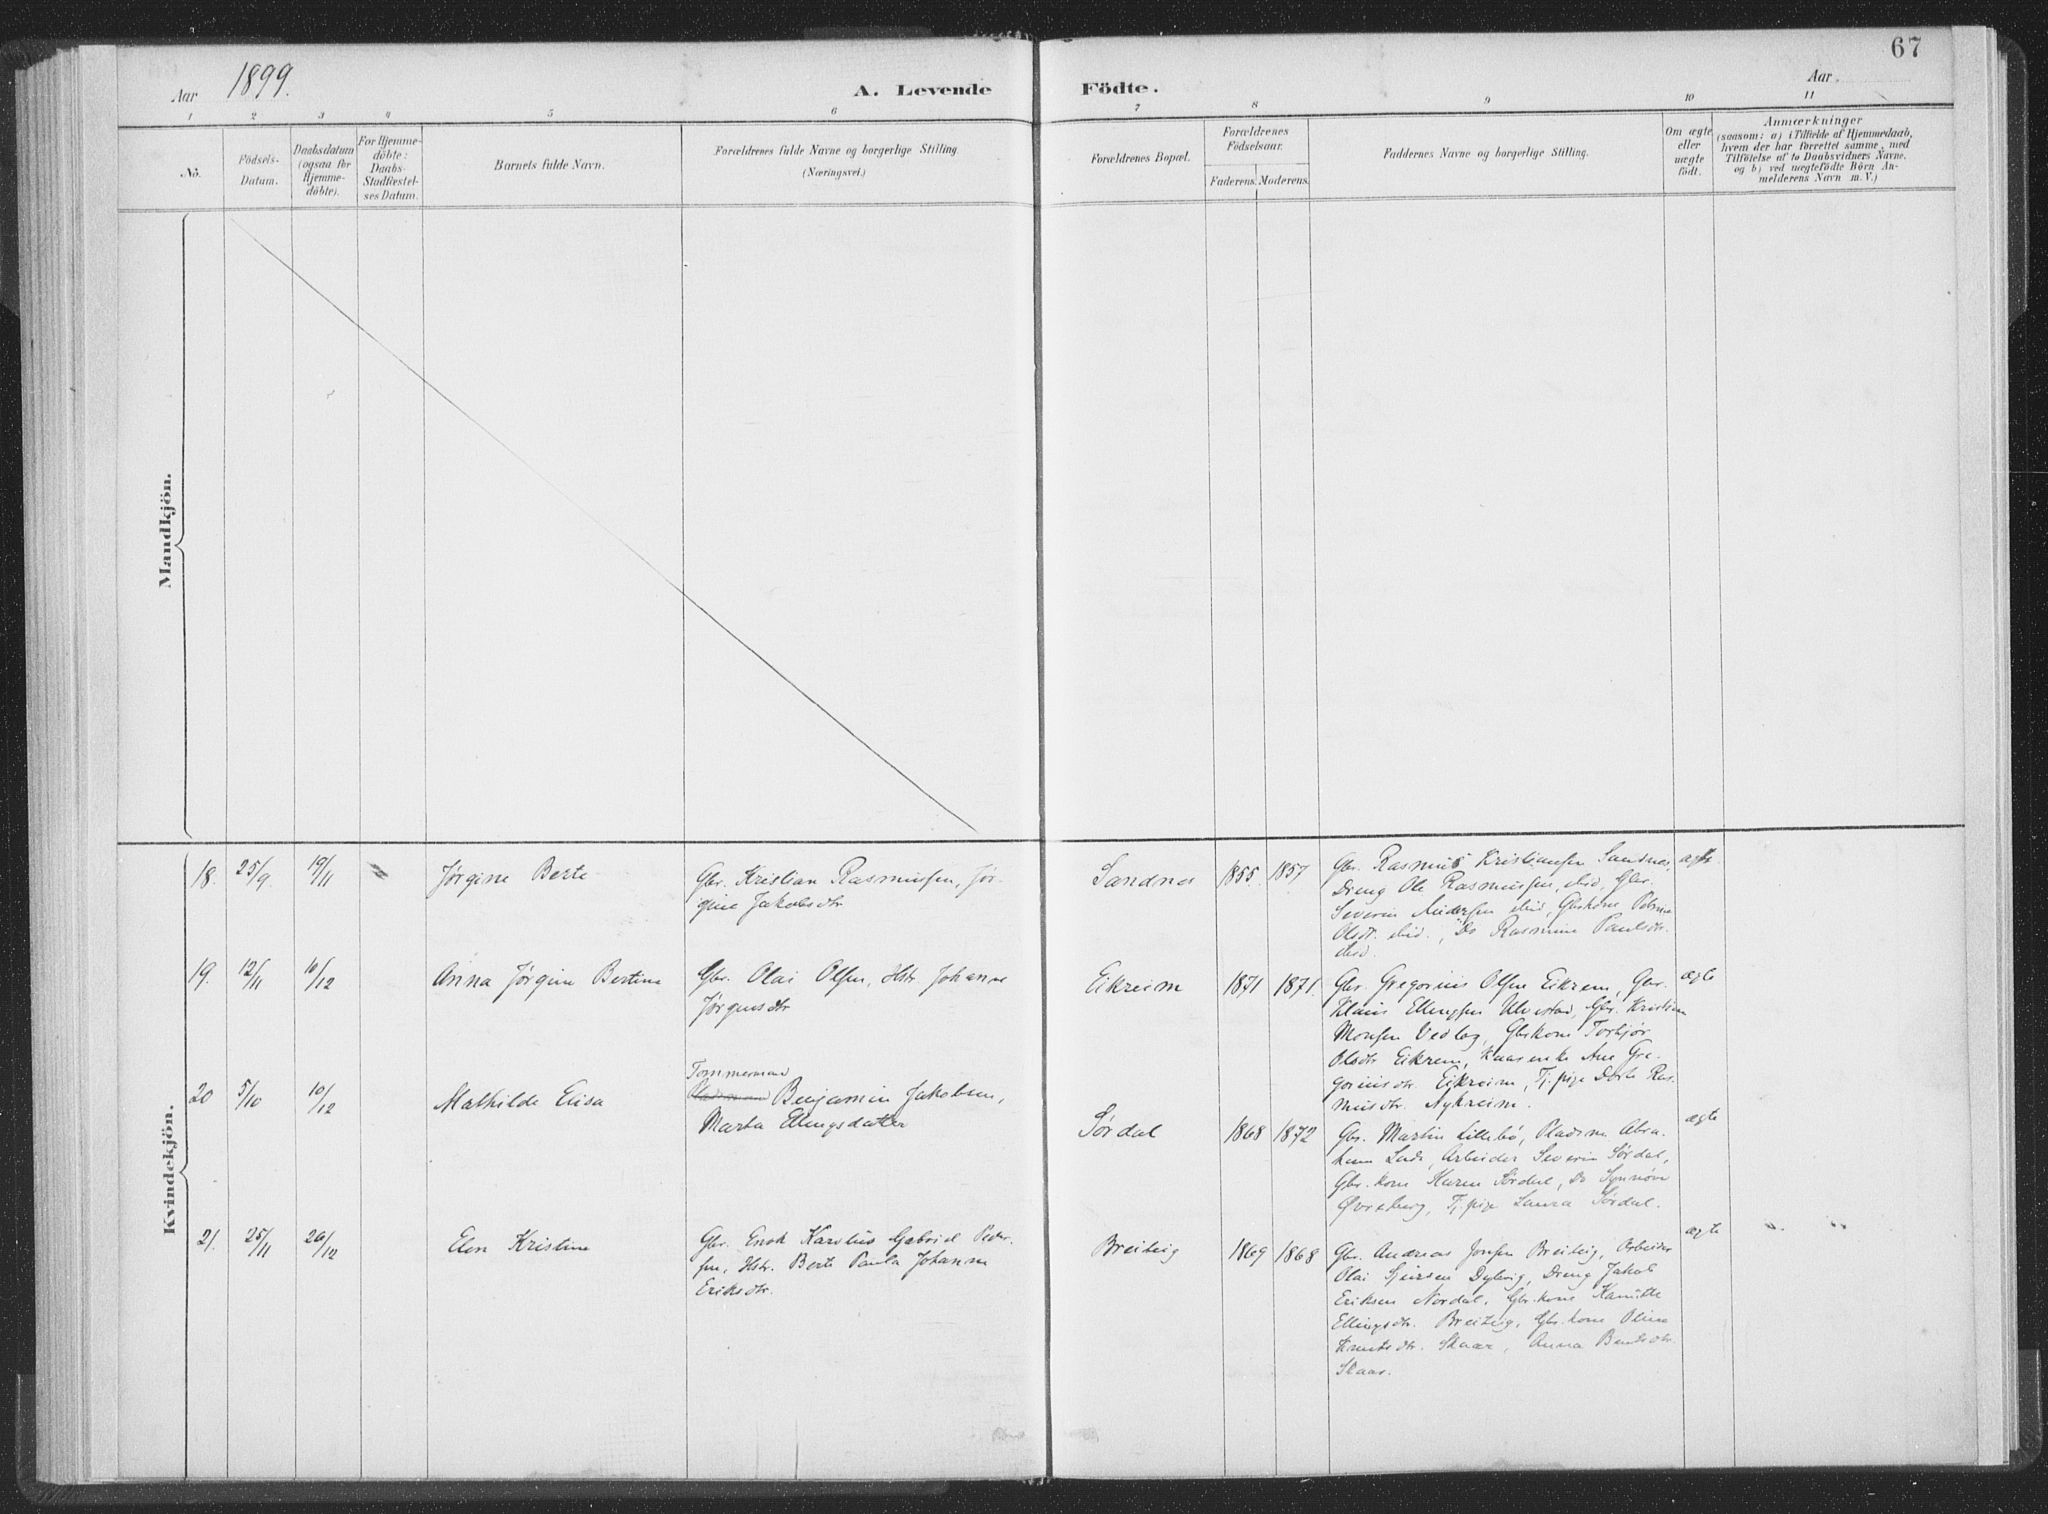 67
Aar 1899.
A. Levende Födte.
Aar
1 2 3 4 5 6 7 8 9 10 11
No.
Födsels-
Datum.
Daabsdatum
(ogsaa for
Hjemme-
döbte).
For Hjemme-
döbte:
Daabs-
Stadfæstel-
ses Datum.
Barnets fulde Navn.
Forældrenes fulde Navne og borgerlige Stilling
(Næringsvei.)
Forældrenes Bopæl.
Forældrenes
Födselsaar.
Faderens. Moderens.
Faddernes Navne og borgerlige Stilling.
Om ægte
eller
uægte
födt.
Anmærkninger
(saasom: a) i Tilfælde af Hjemmedaab,
hvem der har forrettet samme, med
Tilföielse af to Daabsvidners Navne,
og b) ved uægtefödte Börn An-
melderens Navn m. V.)
Mandkjön.
Kvindekjön.
18. 25/9. 19/11
Jørgine Berte
Gbr. Kristian Rasmussen, Jør-
gine Jakobsdtr
Sandnes
1855. 1857
Gbr. Rasmus Kristiansen Sandnes,
Dreng Ole Rasmussen, ibid, Gbr.
Severin Andersen ibid, Gbrkone Petrine
Olsdt. ibid., Do Rasmine Paulsdtr.
ibid.
ægte
19. 12/11 10/12
Anna Jørgine Bertine
Gbr. Olai Olsen, Hstr Johanne
Jørgensdtr
Eikreim
1871 1871.
Gbr. Gregorius Olsen Eikrem, Gbr.
Klaus Ellingsen Ulvestad, Gbr. Kristian
Monsen Vedlog, Gbrkone Torbjør
Olsdtr Eikrem, Kaarenke Ane Gre-
goriusdtr. Eikreim, Tj. pige Dorte Ras-
musdtr. Nykreim.
ægte
20 5/10 10/12
Mathilde Elisa
Tømmermand
Benjamin Jakobsen,
Marta Ellingsdatter
Sørdal
1868 1872
Gbr. Martin Lillebø, Pladsm. Abra-
ham Arbeider Severin Sørdal,
Gbr. kone Karen Sørdal, Do Synnøve
Øvreberg, Tj. pige Laura Sørdal.
ægte
21. 25/11 26/12
Elen Kristine
Gbr. Enok Karolius Gabriel Peder-
sen, Hstr. Berte Paula Johanne
Eriksdtr.
Breiteig
1869 1868
Gbr. Andreas Jonsen Breiteig, Arbeider
Olai Sjursen Dybvig, Dreng Jakob
Eriksen Nordal, Gbr. kone Kamitte
Ellingsdtr. Breiteig, Gbr. kone Oline
Knutsdtr. Skaar, Anna Bendsdtr.
Skaar.
ægte